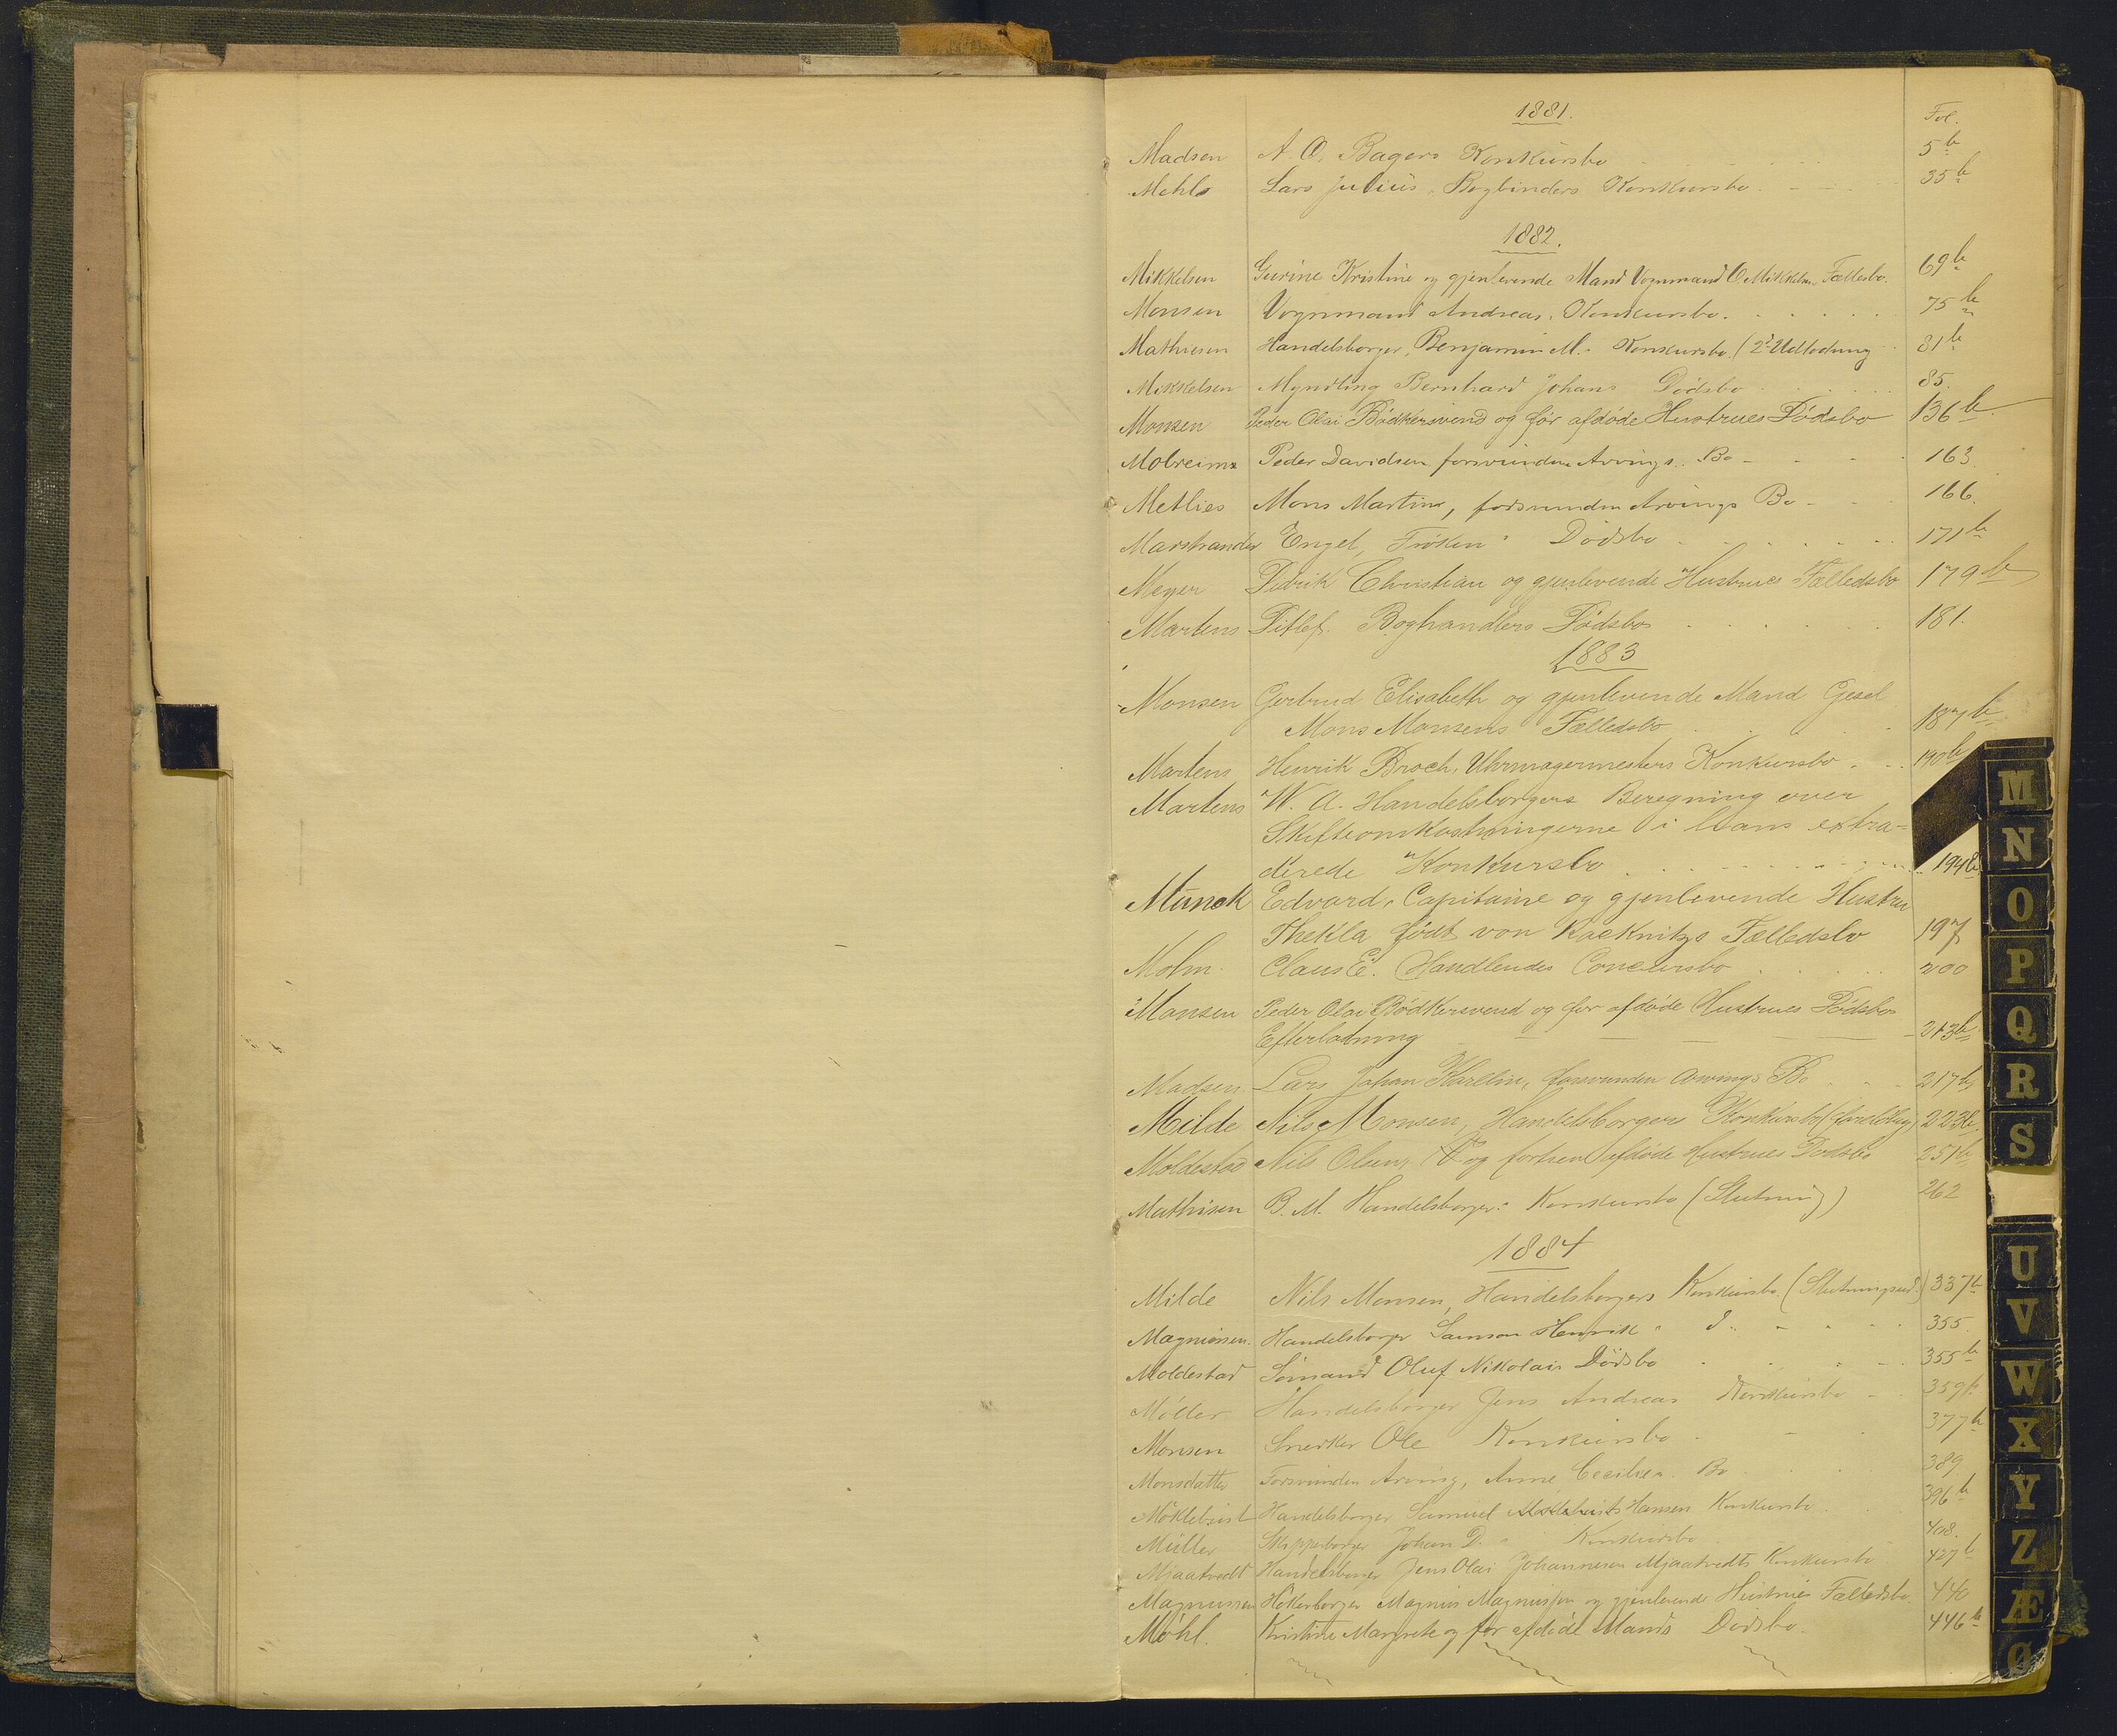 1881.
Fol.
Madsen A. O. Bagers Konkursbo 5b
Mehls Lars Julius, Bogbinders Konkursbo 35b
1882.
Mikkelsen Gurine Kristine og gjenlevende Mand Vognmand O. Mikkelsens Fællesbo. 69b
Monsen Vognmand Andreas, Konkursbo. 75b
Mathiesen Handelsborger, Benjamin M. Konkursbo (2' Udlodning 81b
Mikkelsen Myndling Bernhard Johans Dødsbo 85.
Monsen Peder Olai Bødkersvend og før afdøde Hustrues Dødsbo 136b
Molreims Peder Davidsen forsvunden Arvings Bo 163
Metlies Mons Martins, forsvunden Arvings Bo 166.
Marstrander Engel, Frøken Dødsbo 171b
Meyer Didrik Christian og gjenlevende Hustrues Fælledsbo 179b
Martens Ditlef. Boghandlers Dødsbo 181.
1883
Monsen Gertrud Elisabeth og gjenlevende Mand Gesel
Mons Monsens Fælledsbo 187b
Martens Henrik Broch, Uhrmagermesters Konkursbo 190b
Martens W. A. Handelsborgers Beregning over
Skifteomkostningerne i hans extra-
derede Konkursbo 194b
Munck Edvard, Capitaine og gjenlevende Hustru
Thekla født von Kacknitzs Fælledsbo 197
Molm Claus E. Handlendes Concursbo 200
Monsen Peder Olai Bødkersvend og før afdøde Hustrues Dødsbo
Efterlodning 213b
Madsen Lars Johan Karelin, forsvunden Arvings Bo 217b
Milde Nils Monsen, Handelsborgers Konkursbo 223b
Moldestad Nils Olsen, og forhen afdøde Hustrues Dødsbo 251b
Mathisen B. M. Handelsborger Konkursbo (Slutning) 262
1884
Milde Nils Monsen, Handelsborgers Konkursbo 337b
Magnussen Handelsborger Samson Henrik 355
Moldestad Sømand Oluf Nikolais Dødsbo 355b
Møller Handelsborger Jens Andreas Konkursbo 359b
Monsen Snerker Ole Konkursbo 377b
Monsdatter Forsvunden Arving, Anne Cecilies Bo 389
Møklebust Handelsborger Samuel Hansen Konkursbo 396b
Müller Skipperborger Johan D. Konkursbo 408.
Mjaatvedt Handelsborger Jens Olai Johannesen Mjaatvedts Konkursbo 427b
Magnussen Høkerborger Magnus Magnussen og gjenlevende Hustrues Fælledsbo 440
Møhl. Kristine Margrete og før afdøde Mands Dødsbo. 446b
M
N
O
P
Q
R
S
U
V
W
X
Y
Z
Æ
Ø